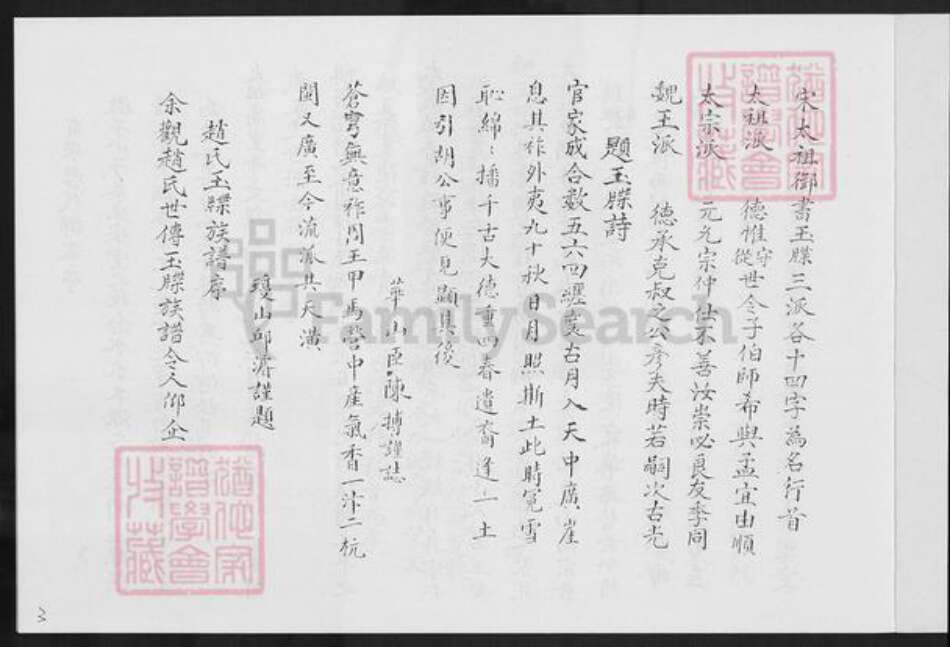 宋太祖御書玉牒三派各十四字為名行首
太祖派 德惟守從世令子伯師希與孟宜由順
太宗派 元允宗仲仕不善汝崇必良友季同
魏王派 德承克叔之公彥夫時若嗣次古光
題玉牒詩
官家成合數五六四纒 古月入天中廣崖
息其祚外夷九十秋日月照斯土此時冤雪
恥綿〻播千古大德重四春遺裔逢一土
因引胡公事便見顯其後
華山臣陳摶謹誌
蒼穹無意祚周王甲馬營中產氣香一汴二杭
閩又廣至今流派其天潢
瓊山邱濬謹題
趙氏玉牒族譜序
余觀趙氏世傳玉牒族譜令人仰企
譜學會
收藏
譜學會
收藏
FamilySearch
3